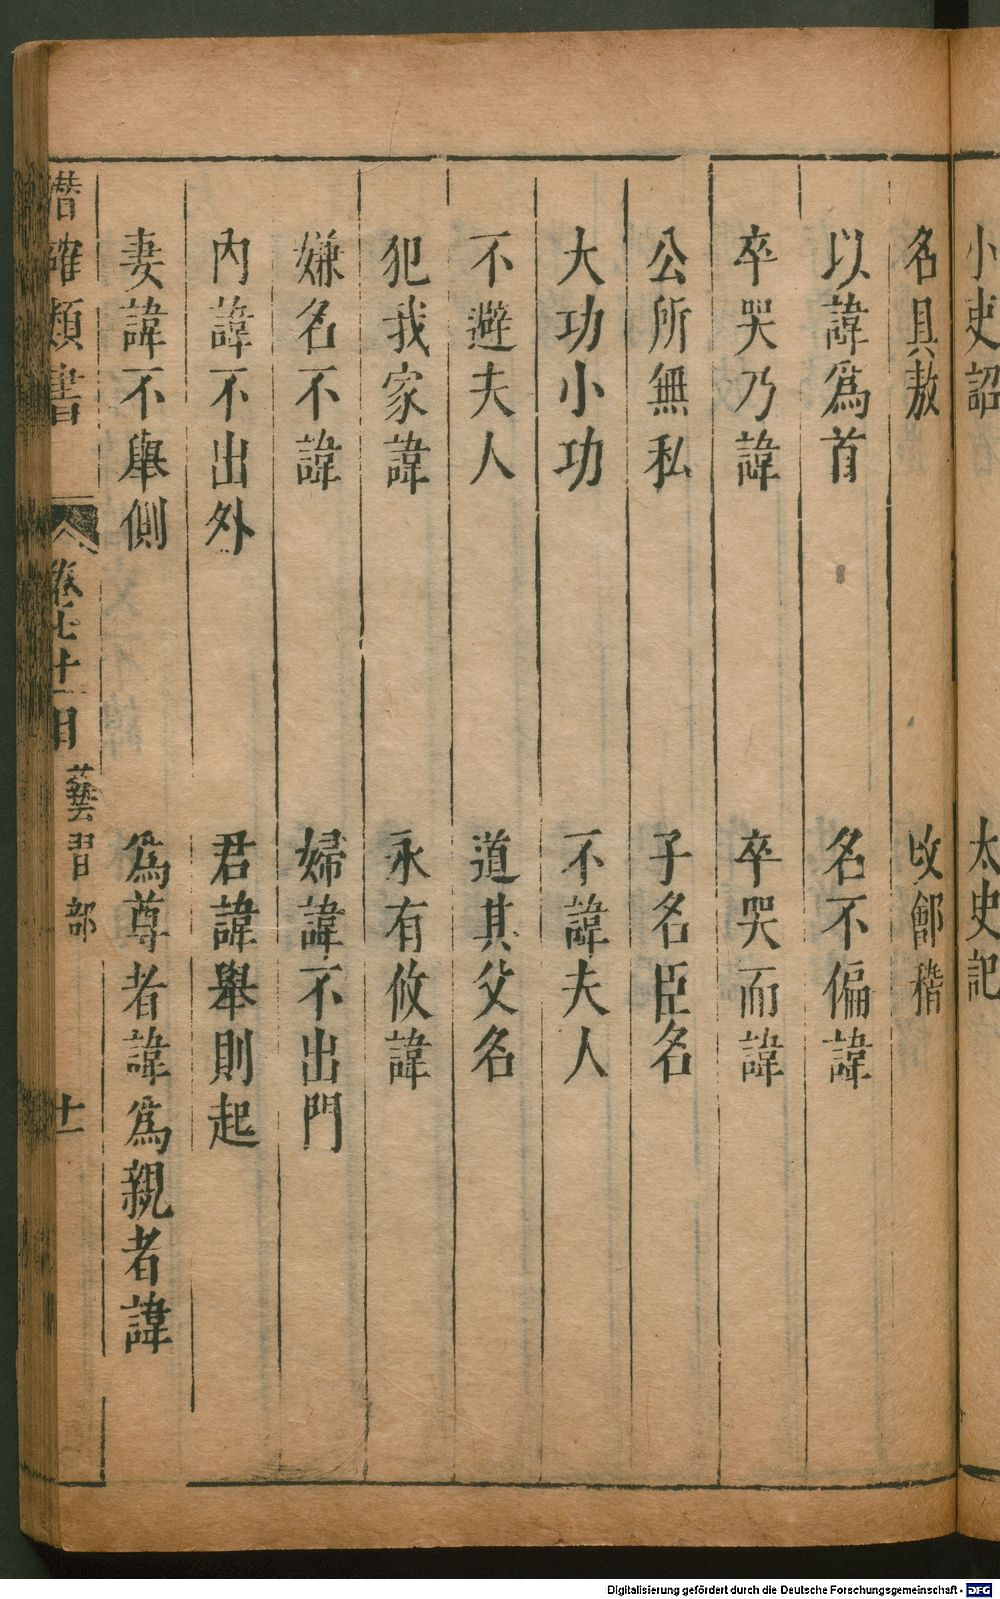 小史詔　太史記
名具敖　改鄫稽
以諱爲首　名不偏諱
卒哭乃諱　卒哭而諱
公所無私　子名臣名
大功小功　不諱夫人
不避夫人　道其父名
犯我家諱　永有攸諱
嫌名不諱　婦諱不出門
內諱不出外　君諱舉則起
妻諱不舉側　爲尊者諱爲親者諱
潛確類書　卷七十一目　藝習部　十一
Digitalisierung gefördert durch die Deutsche Forschungsgemeinschaft - DFG